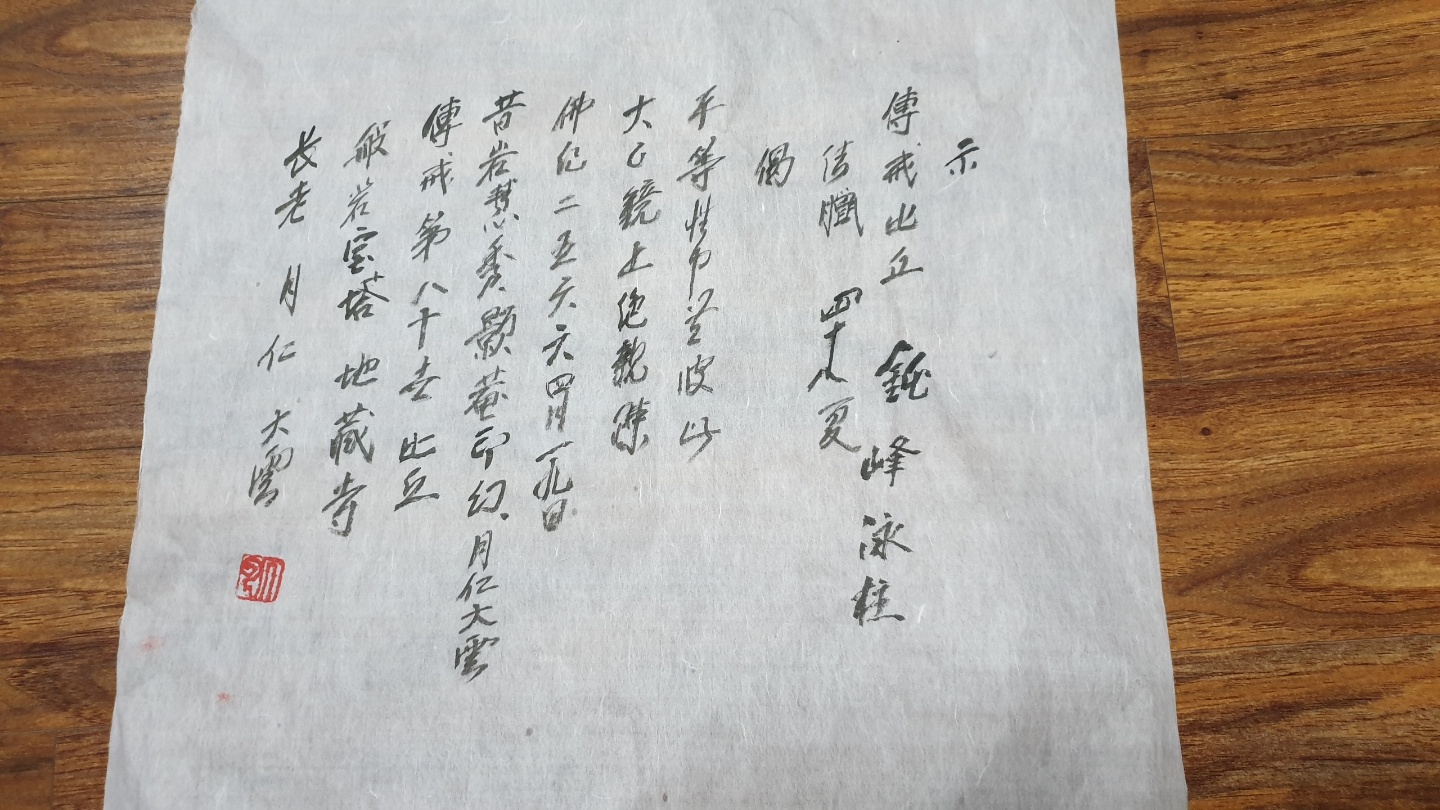 示
傳戒比丘 鉞峰泳柱
僧臘 四十八夏
偈
平等性中莫彼此
大圓鏡上絶親踈
佛紀二五六六四月一九日
昔岩慧秀顯菴印幻月仁大雲
傳戒第八十 比丘
般岩寶塔 地藏寺
長老 月仁 大雲